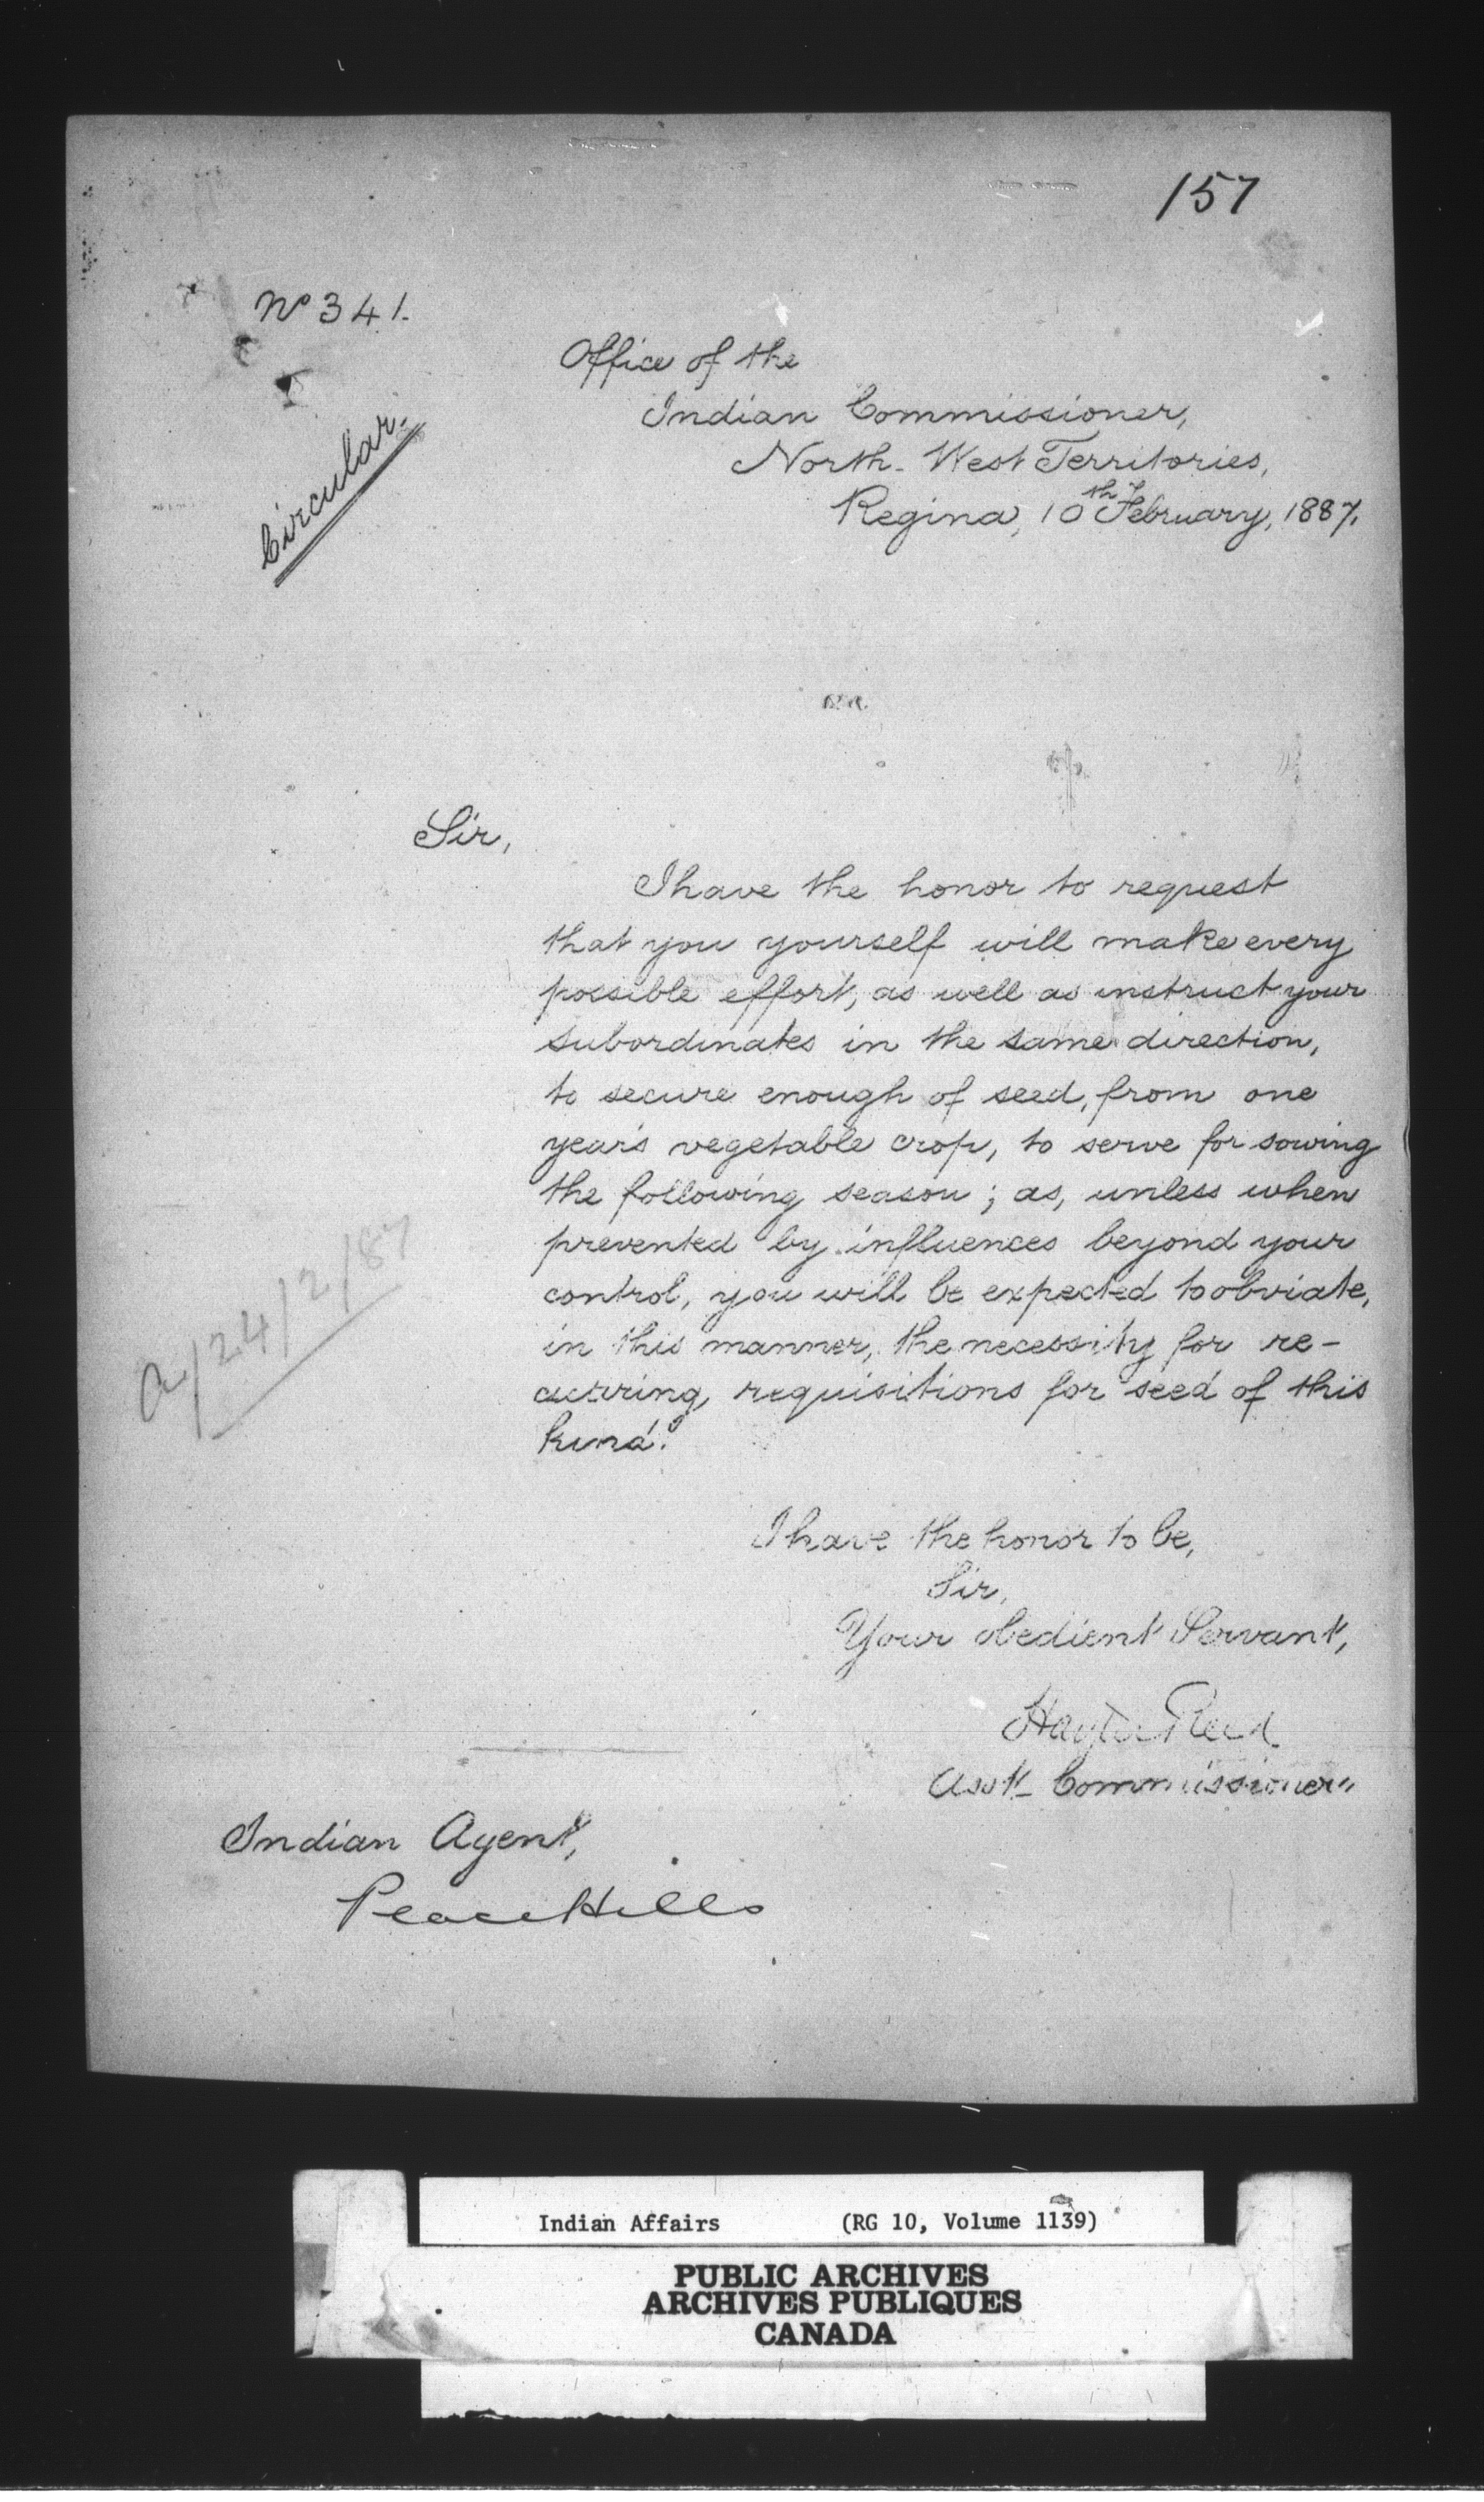 157
No 341.
Circular.
Office of the
Indian Commissioner,
North-West Territories,
Regina, 10th February, 1887.
Sir,
I have the honor to request
that you yourself will make every
possible effort, as well as instruct your
subordinates in the same direction,
to secure enough of seed, from one
year's vegetable crop, to serve for sowing
the following season; as, unless when
prevented by influences beyond your
control, you will be expected to obviate,
in this manner, the necessity for re-
curring requisitions for seed of this
kind.
a/24/2/87
I have the honor to be,
Sir,
Your obedient Servant,
Hayter Reed
Asst. Commissioner.
Indian Agent,
Peace Hills
Indian Affairs (RG 10, Volume 1139)
PUBLIC ARCHIVES
ARCHIVES PUBLIQUES
CANADA